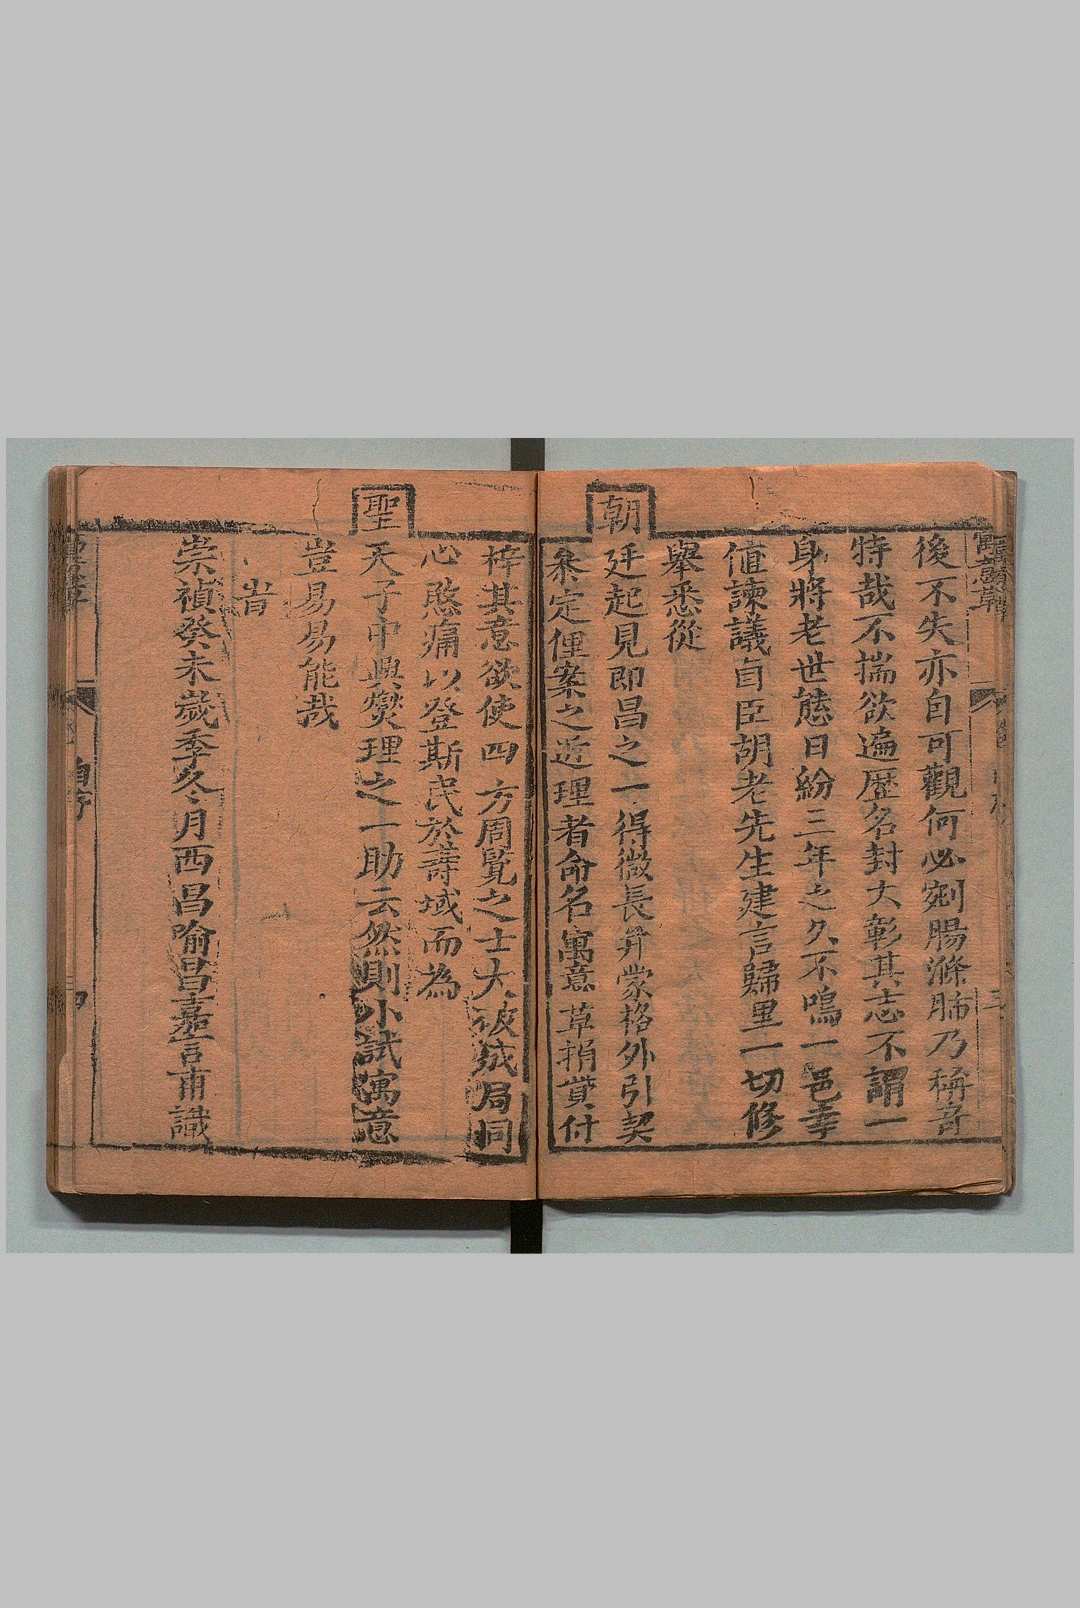 寓意草
後不失亦自可觀何必剜腸滌肺乃稱奇
特哉不揣欲遍歷名封大彰其志不謂一
身將老世態日紛三年之久不鳴一邑幸
値諫議自臣胡老先生建言歸里一切修
舉悉從
朝
廷起見即昌之一得微長并蒙格外引契
叅定俚案之近理者命名寓意草捐貲付
梓其意欲使四方周覽之士大破城局同
心愍痛以登斯民於壽域而為
聖
天子中興燮理之一助云然則小試寓意
豈易易能哉
旹
崇禎癸未歲季冬月西昌喻昌嘉言甫識
自序
四